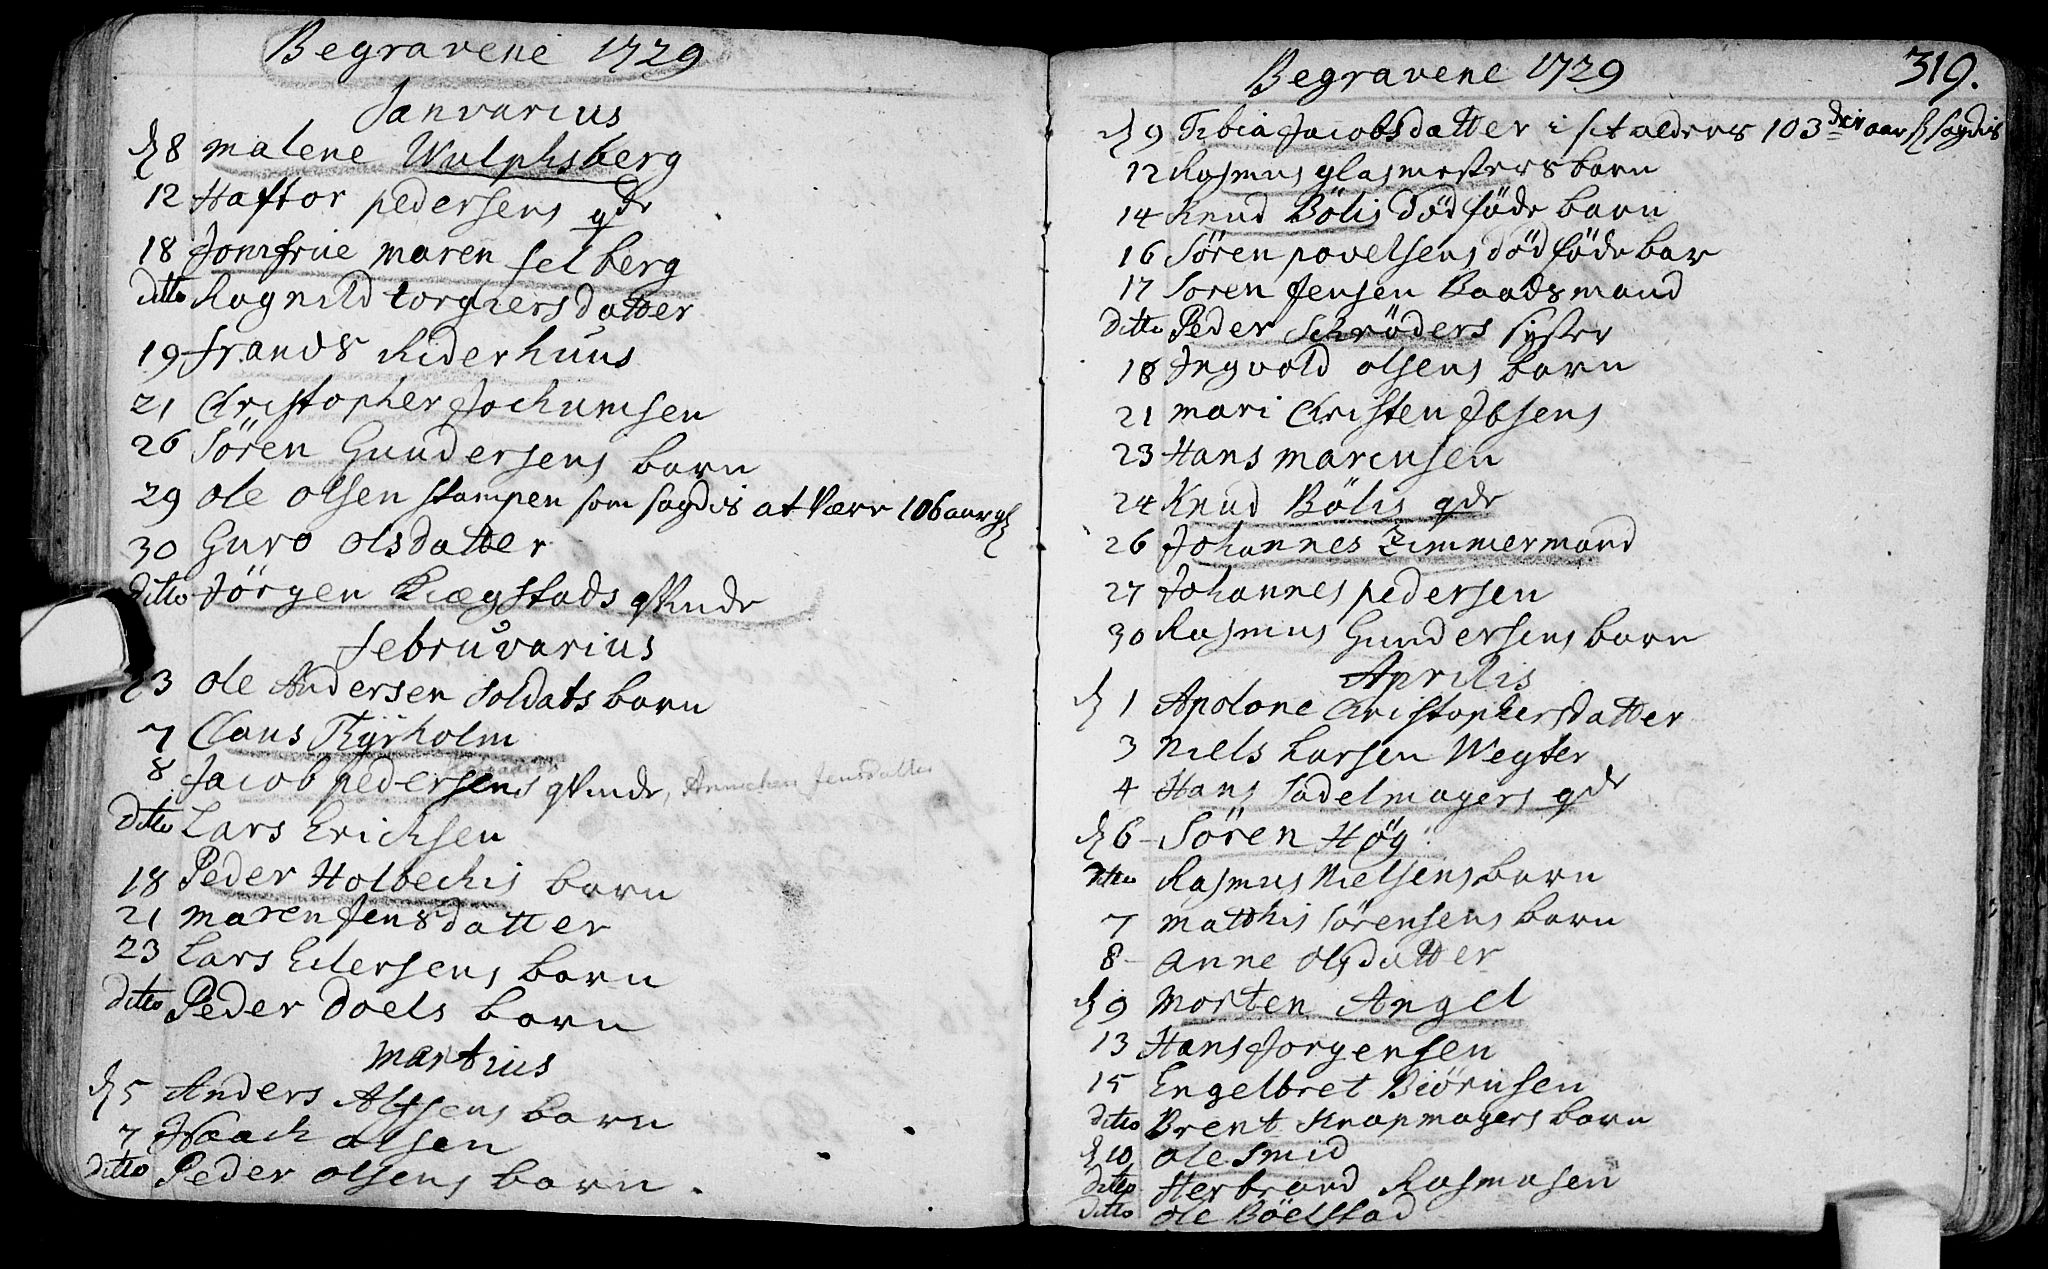 Begravene 1729
Janvarius
d 8 malene Wulphsberg
12 Haftor pedersens qde
18 Jomfrue maren selberg
ditto Ragnild torgiersdatter
19 frands Riderhuus
21 Christopher Jochumsen
26 Sören Gundersens barn
29 Ole Olsen stampen som sagdis at være 106 aar gl
30 Guro Olsdatter
ditto Jörgen Kiægstads qvinde
februvarius
d 3 Ole Andersen soldats barn
7 Claus Tÿrholm
8 Jacob pedersens qvinde, Annichen Jensdatter
ditto Lars Ericksen
18 Peder Holbechis barn
21 maren Jensdatter
23 Lars Eilersens barn
ditto Peder Doels barn
martius
d 5 Anders Alfsens barn
7 Isaach olsen
ditto Peder olsens barn.
Begravene 1729 319.
d 9 Tibia Jacobsdatter i sit alders 103 die aar sagdis
12 Rasmus glasmesters barn
14 Knud Bölis dödföde barn
16 Sören povelsens dödföde bar
17 Soren Jensen Baadsmand
ditto Peder Schröders syster
18 Ingvold olsens barn
21 mari Christen Ibsens
23 Hans marensen
24 Knud Bölis qde
26 Johannes Zimmermand
27 Johannes pedersen
30 Rasmus Gundersens barn
Aprilis
d 1 Apolone Christophersdatter
3 Niels Larsen Wegter
4 Hans Sadelmagers qde
d 6 Sören Höy
ditto Rasmus Nielsens barn
7 matthis sörensens barn
8 Anne Olsdatter
d 9 Morten Angel
13 Hans Jorgensen
15 Engelbret Biörnsen
ditto Brent Knapmagers barn
d 10 Ole Smid
ditto Herbrand Rasmusen
ditto Ole Böelstad